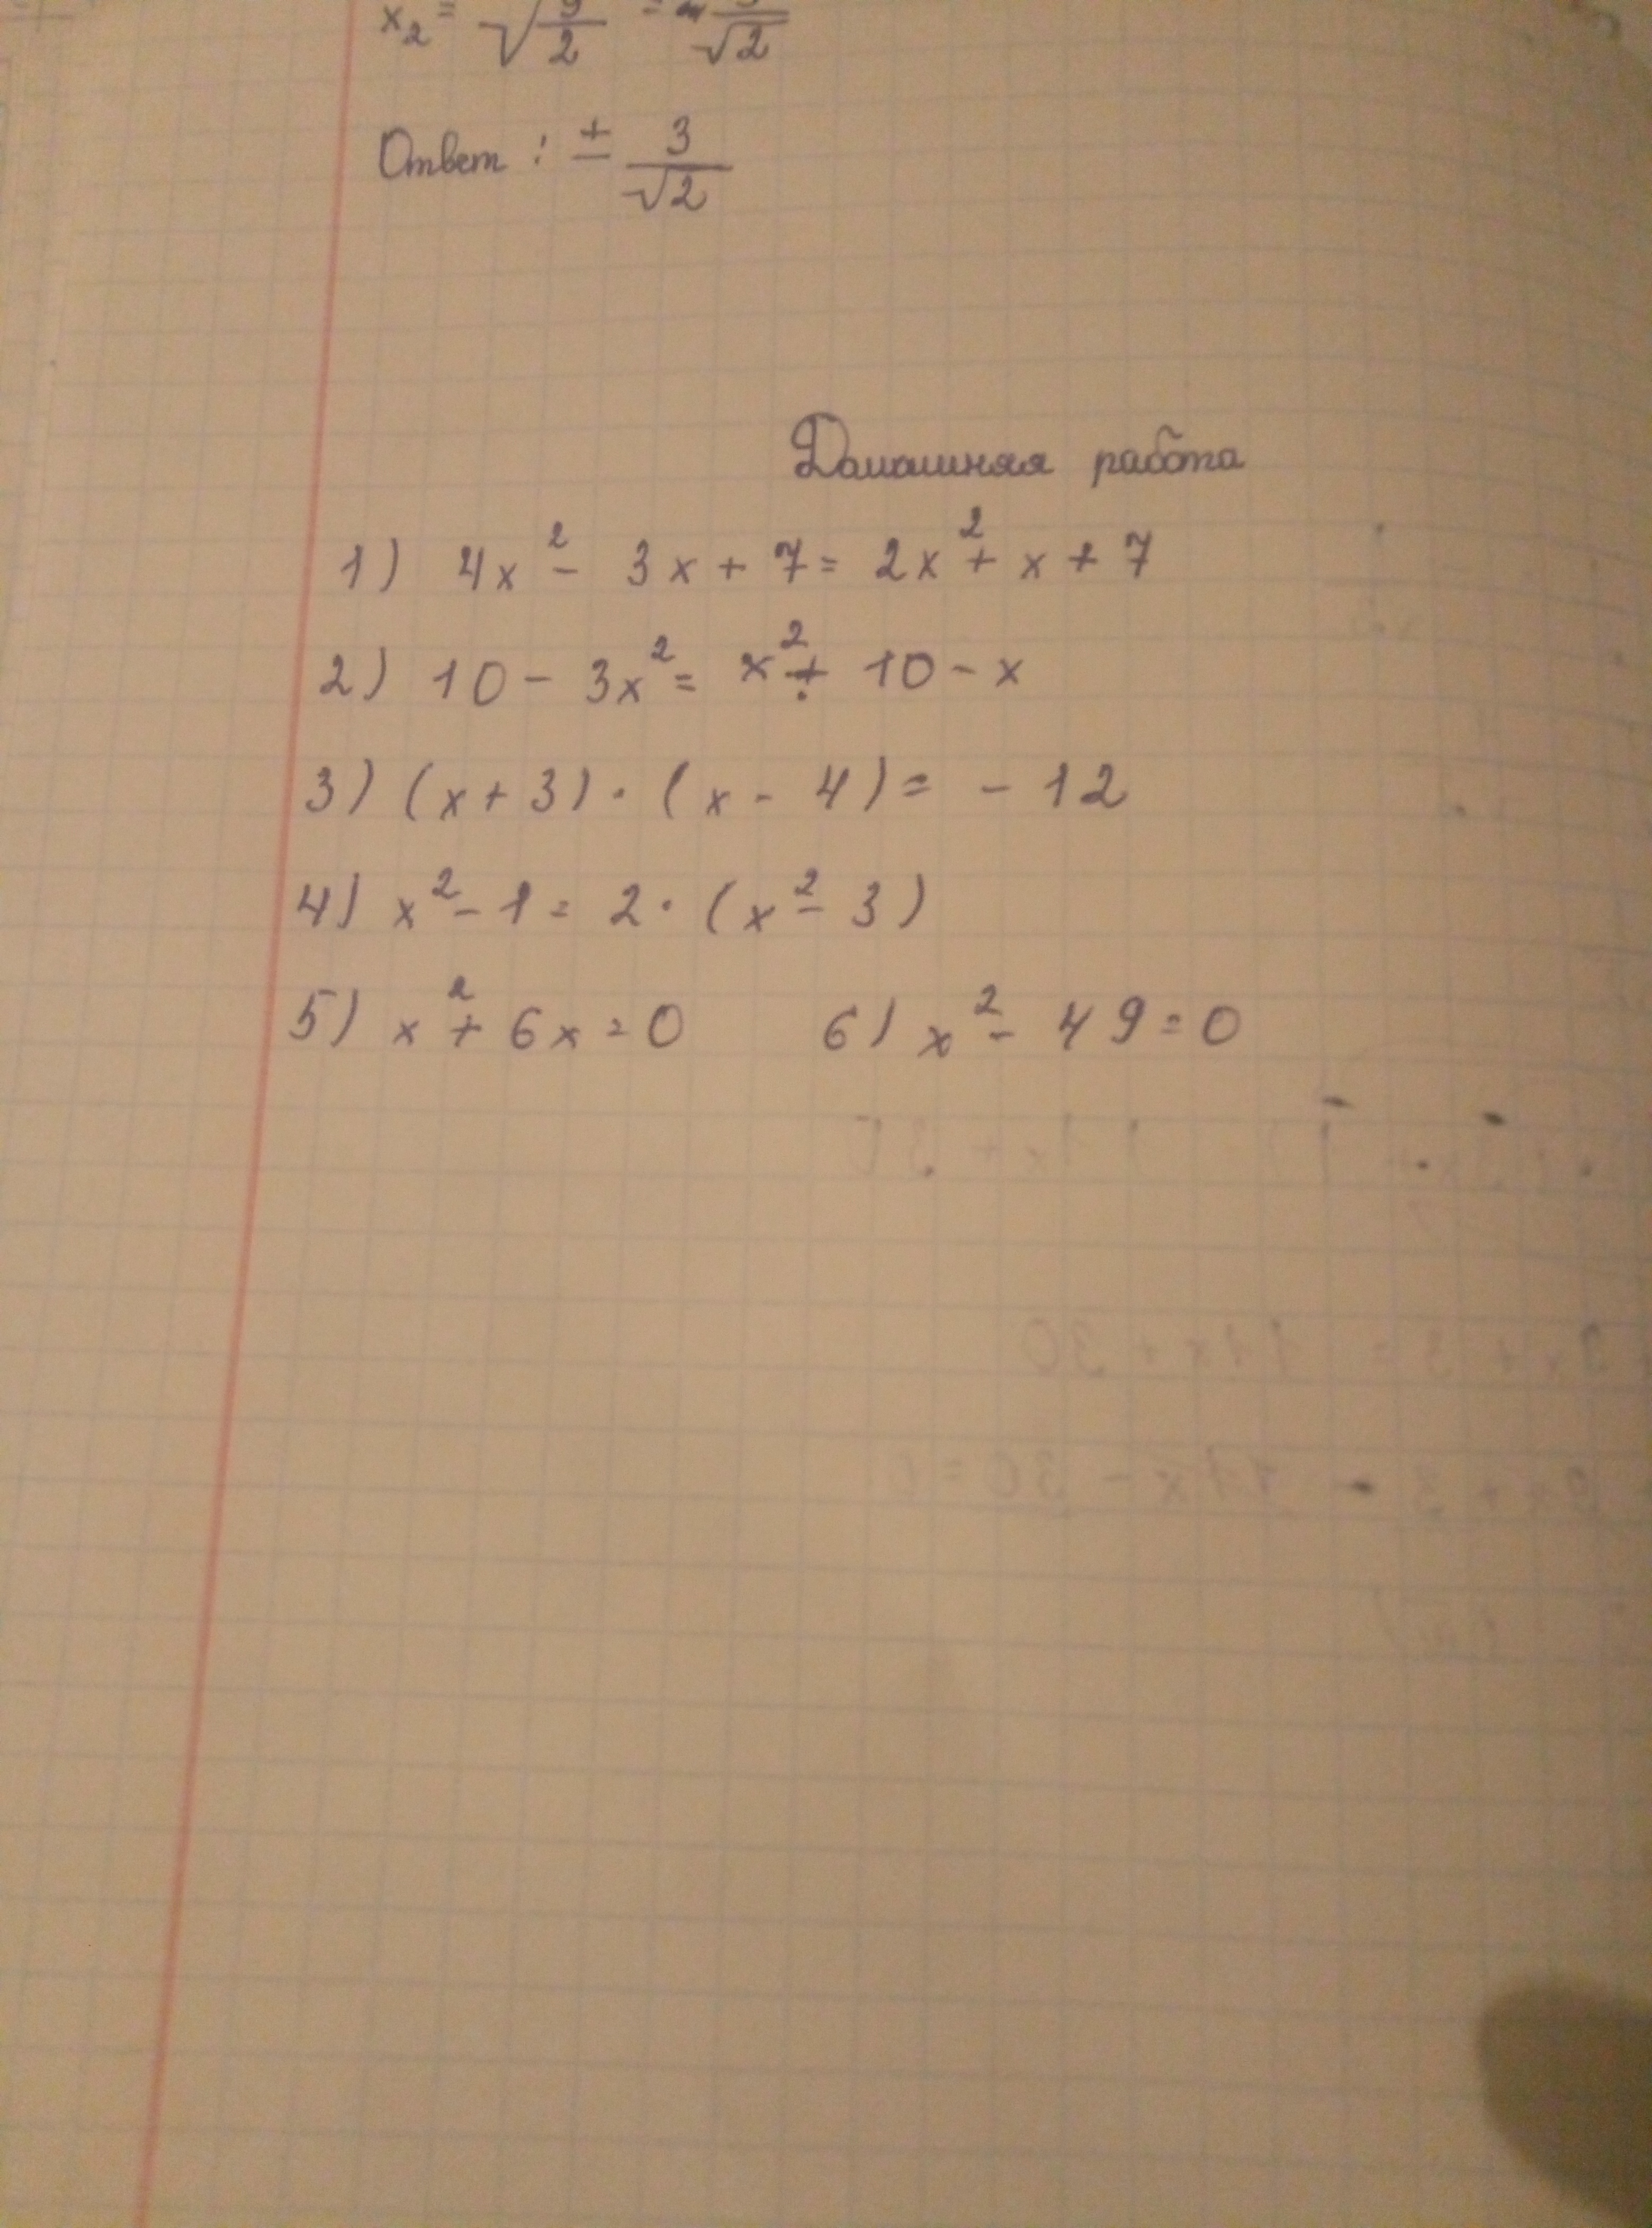 x₂ = √(9/2) = 3/√2
Ответ : ± 3/√2
Домашняя работа
1) 4x² - 3x + 7 = 2x² + x + 7
2) 10 - 3x² = x² + 10 - x
3) (x + 3) · (x - 4) = - 12
4) x² - 1 = 2 · (x² - 3)
5) x² + 6x = 0 6) x² - 49 = 0